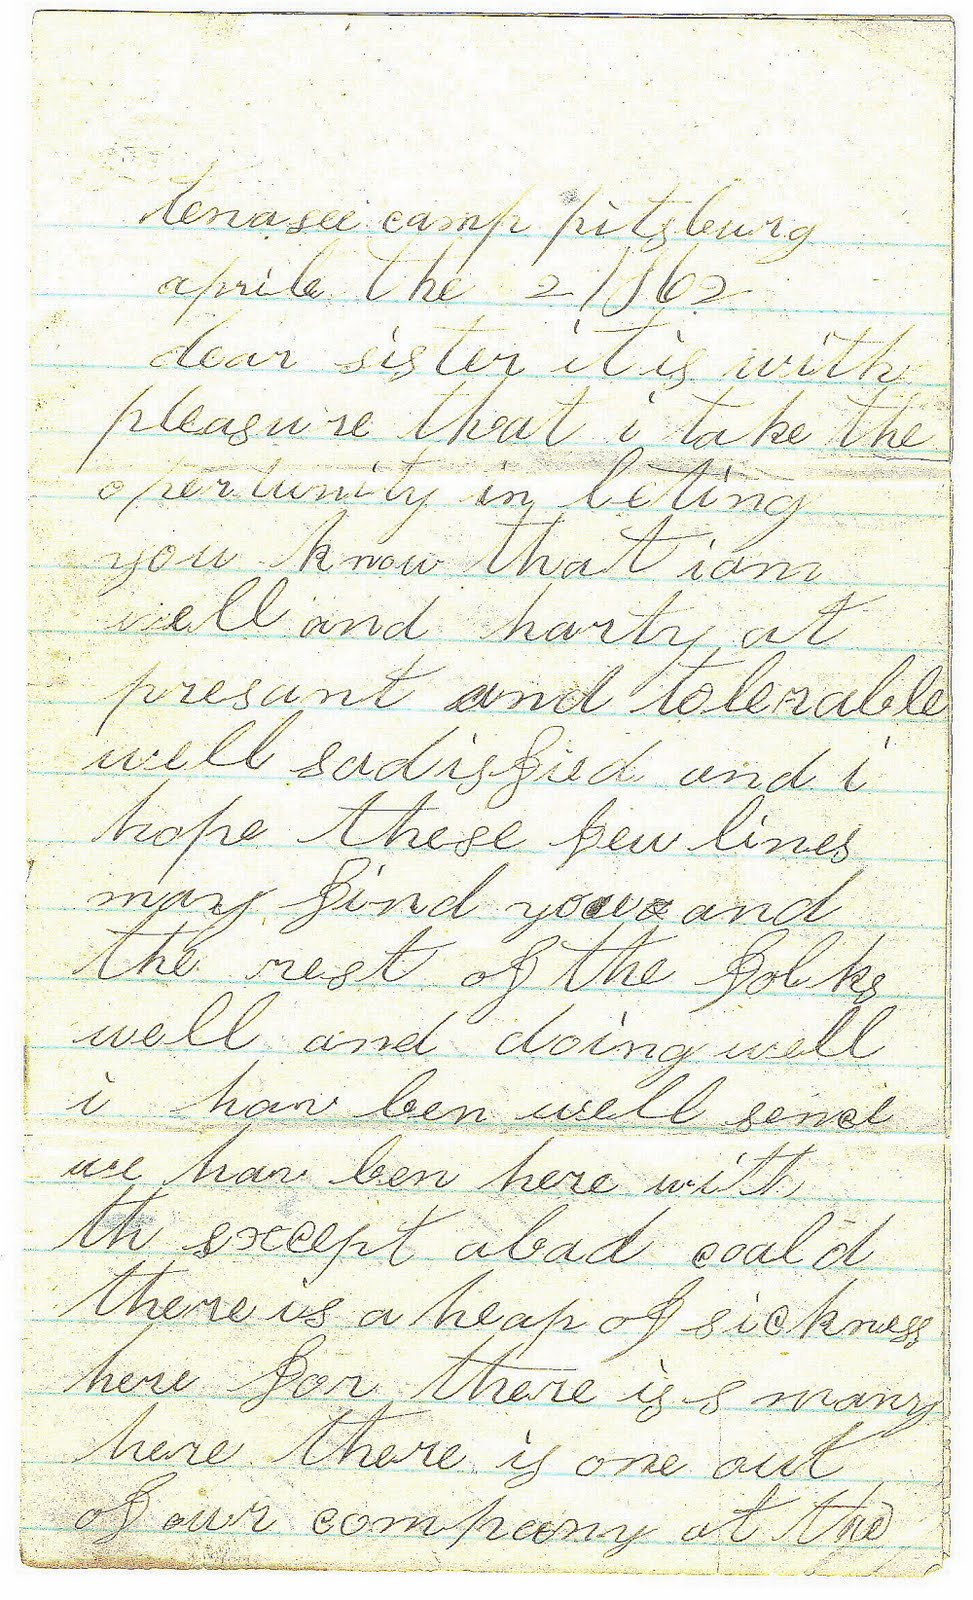 tenasee camp pitsburg
aprile the 2 1862
dear sister it is with
pleasure that i take the
opertunity in leting
you know that i am
well and harty at
presant and tolerable
well sadisfied and i
hope these few lines
may find you and
the rest of the folks
well and doing well
i hav ben well sence
we hav ben here with
th except a bad coald
there is a heap of sickness
here for there is s many
here there is one out
of our company at the